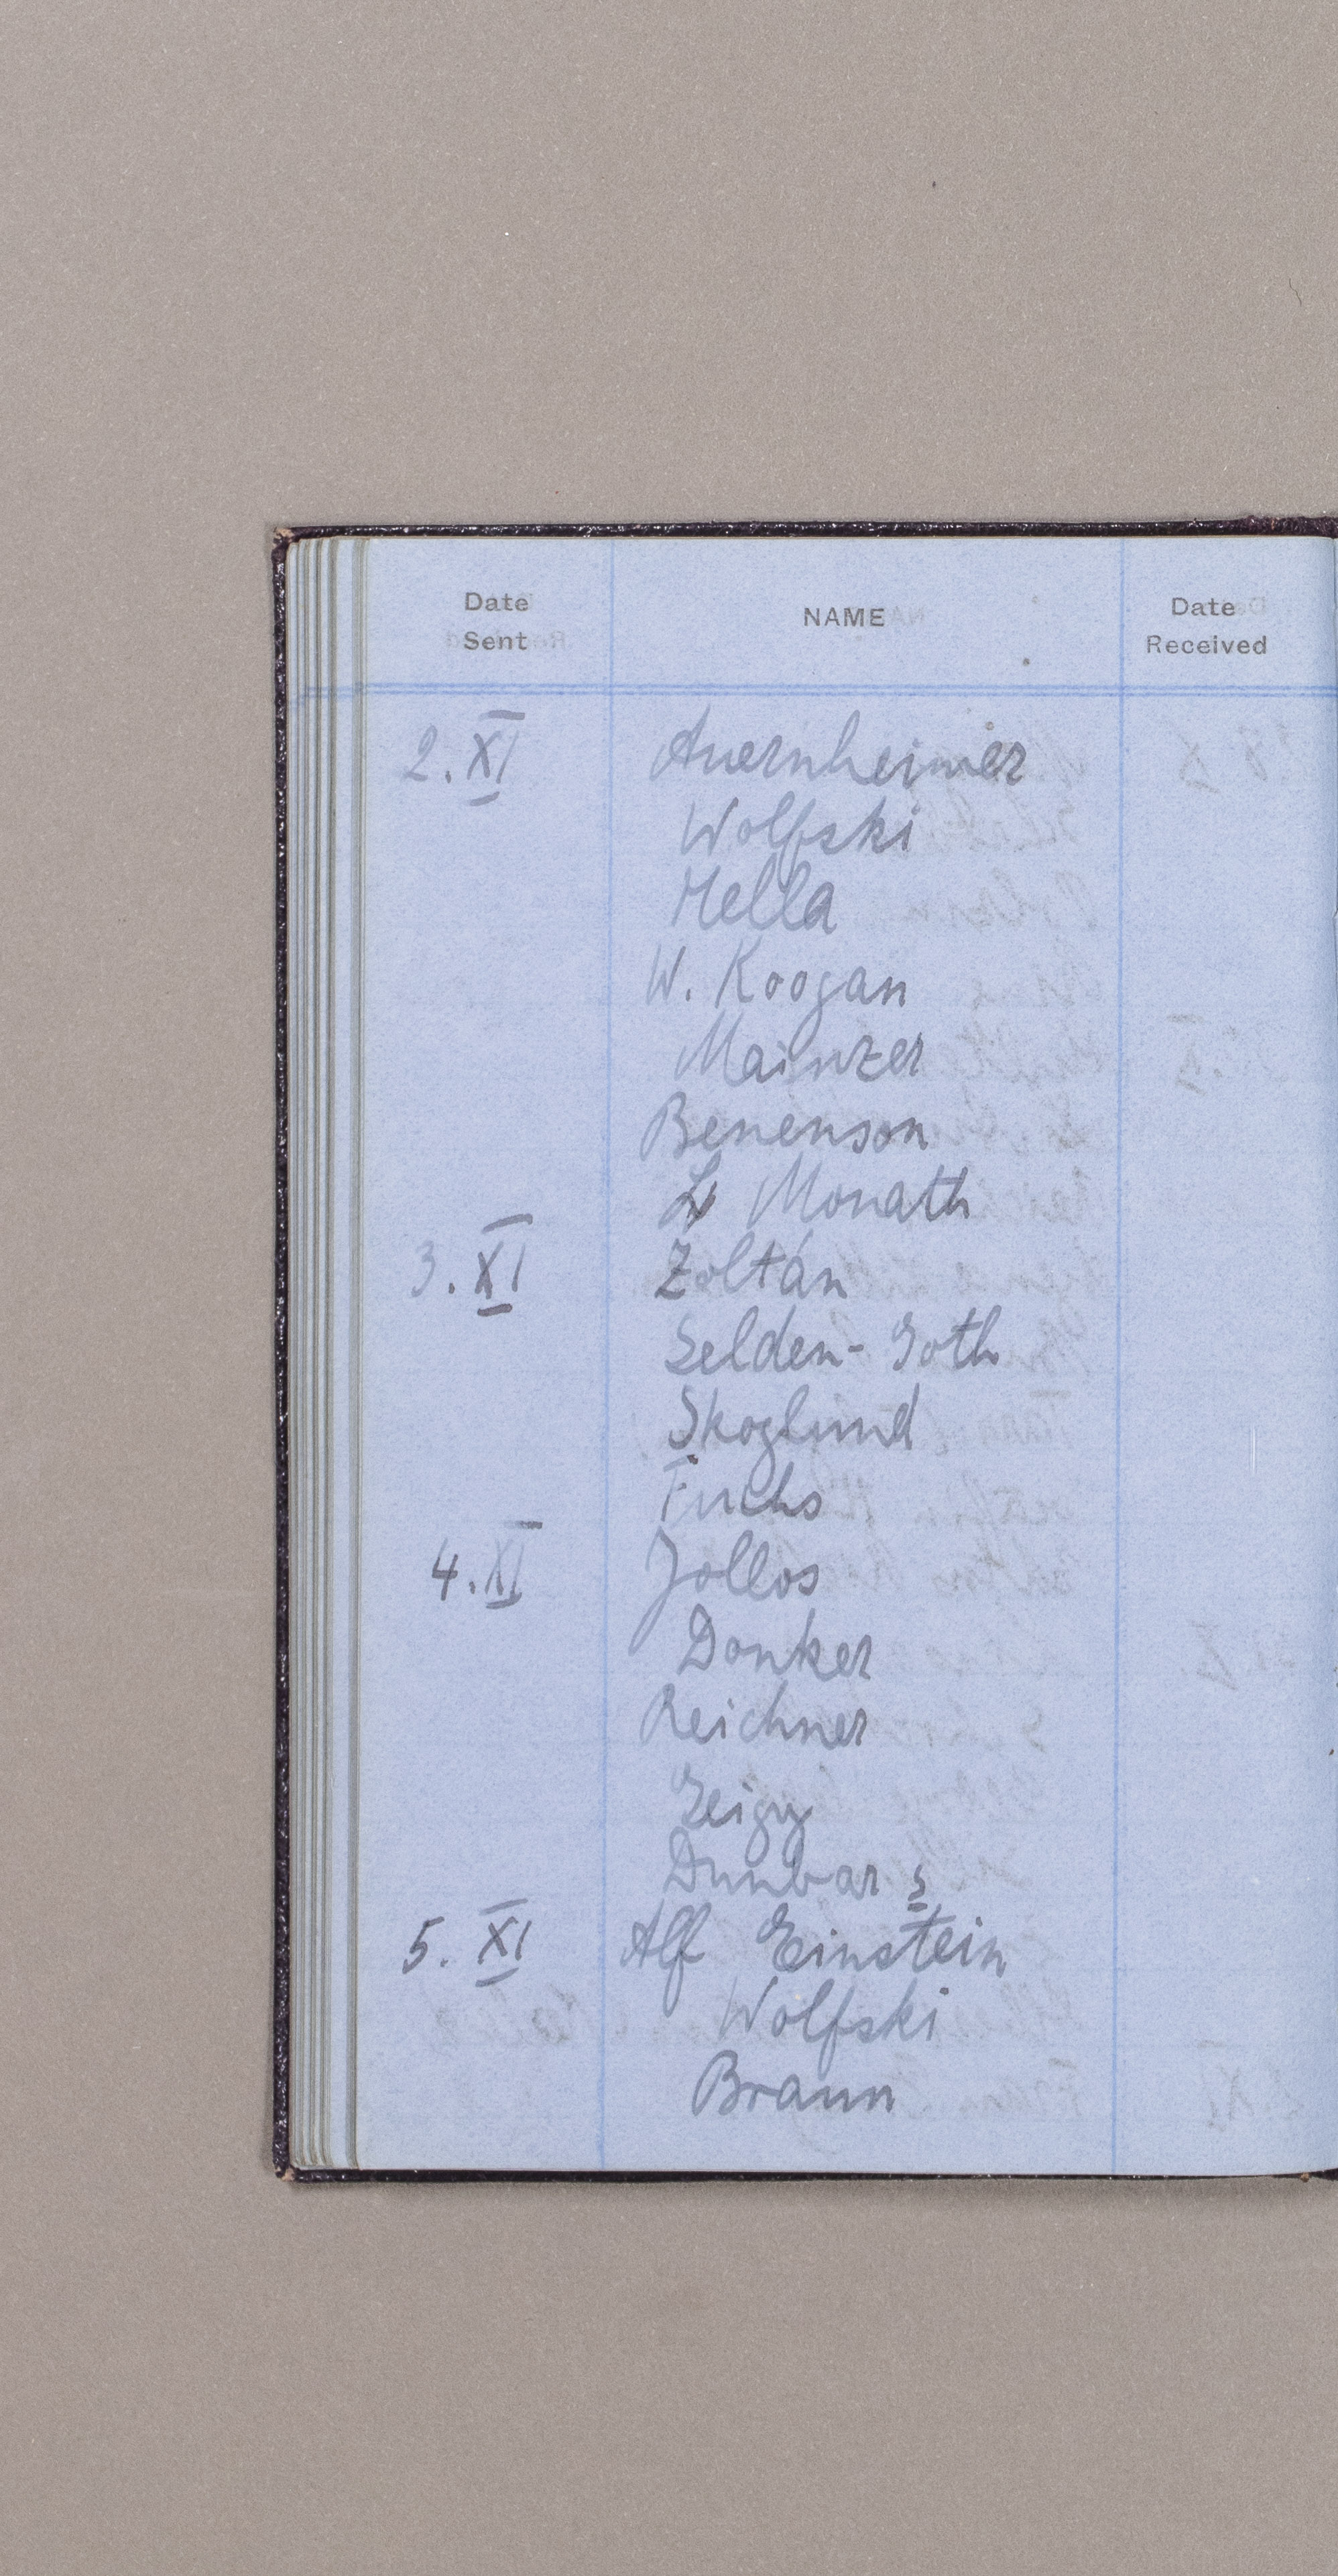 Date Sent NAME Date Received
2. XI Auernheimer
Wolfski
Hella
W. Koogan
Mainzer
Benenson
L Monath
3. XI Zoltán
Selden-Goth
Skoglund
Fuchs
4. XI Jollos
Donker
Reichner
Geigy
Dunbar s
5. XI Alf Einstein
Wolfski
Braun